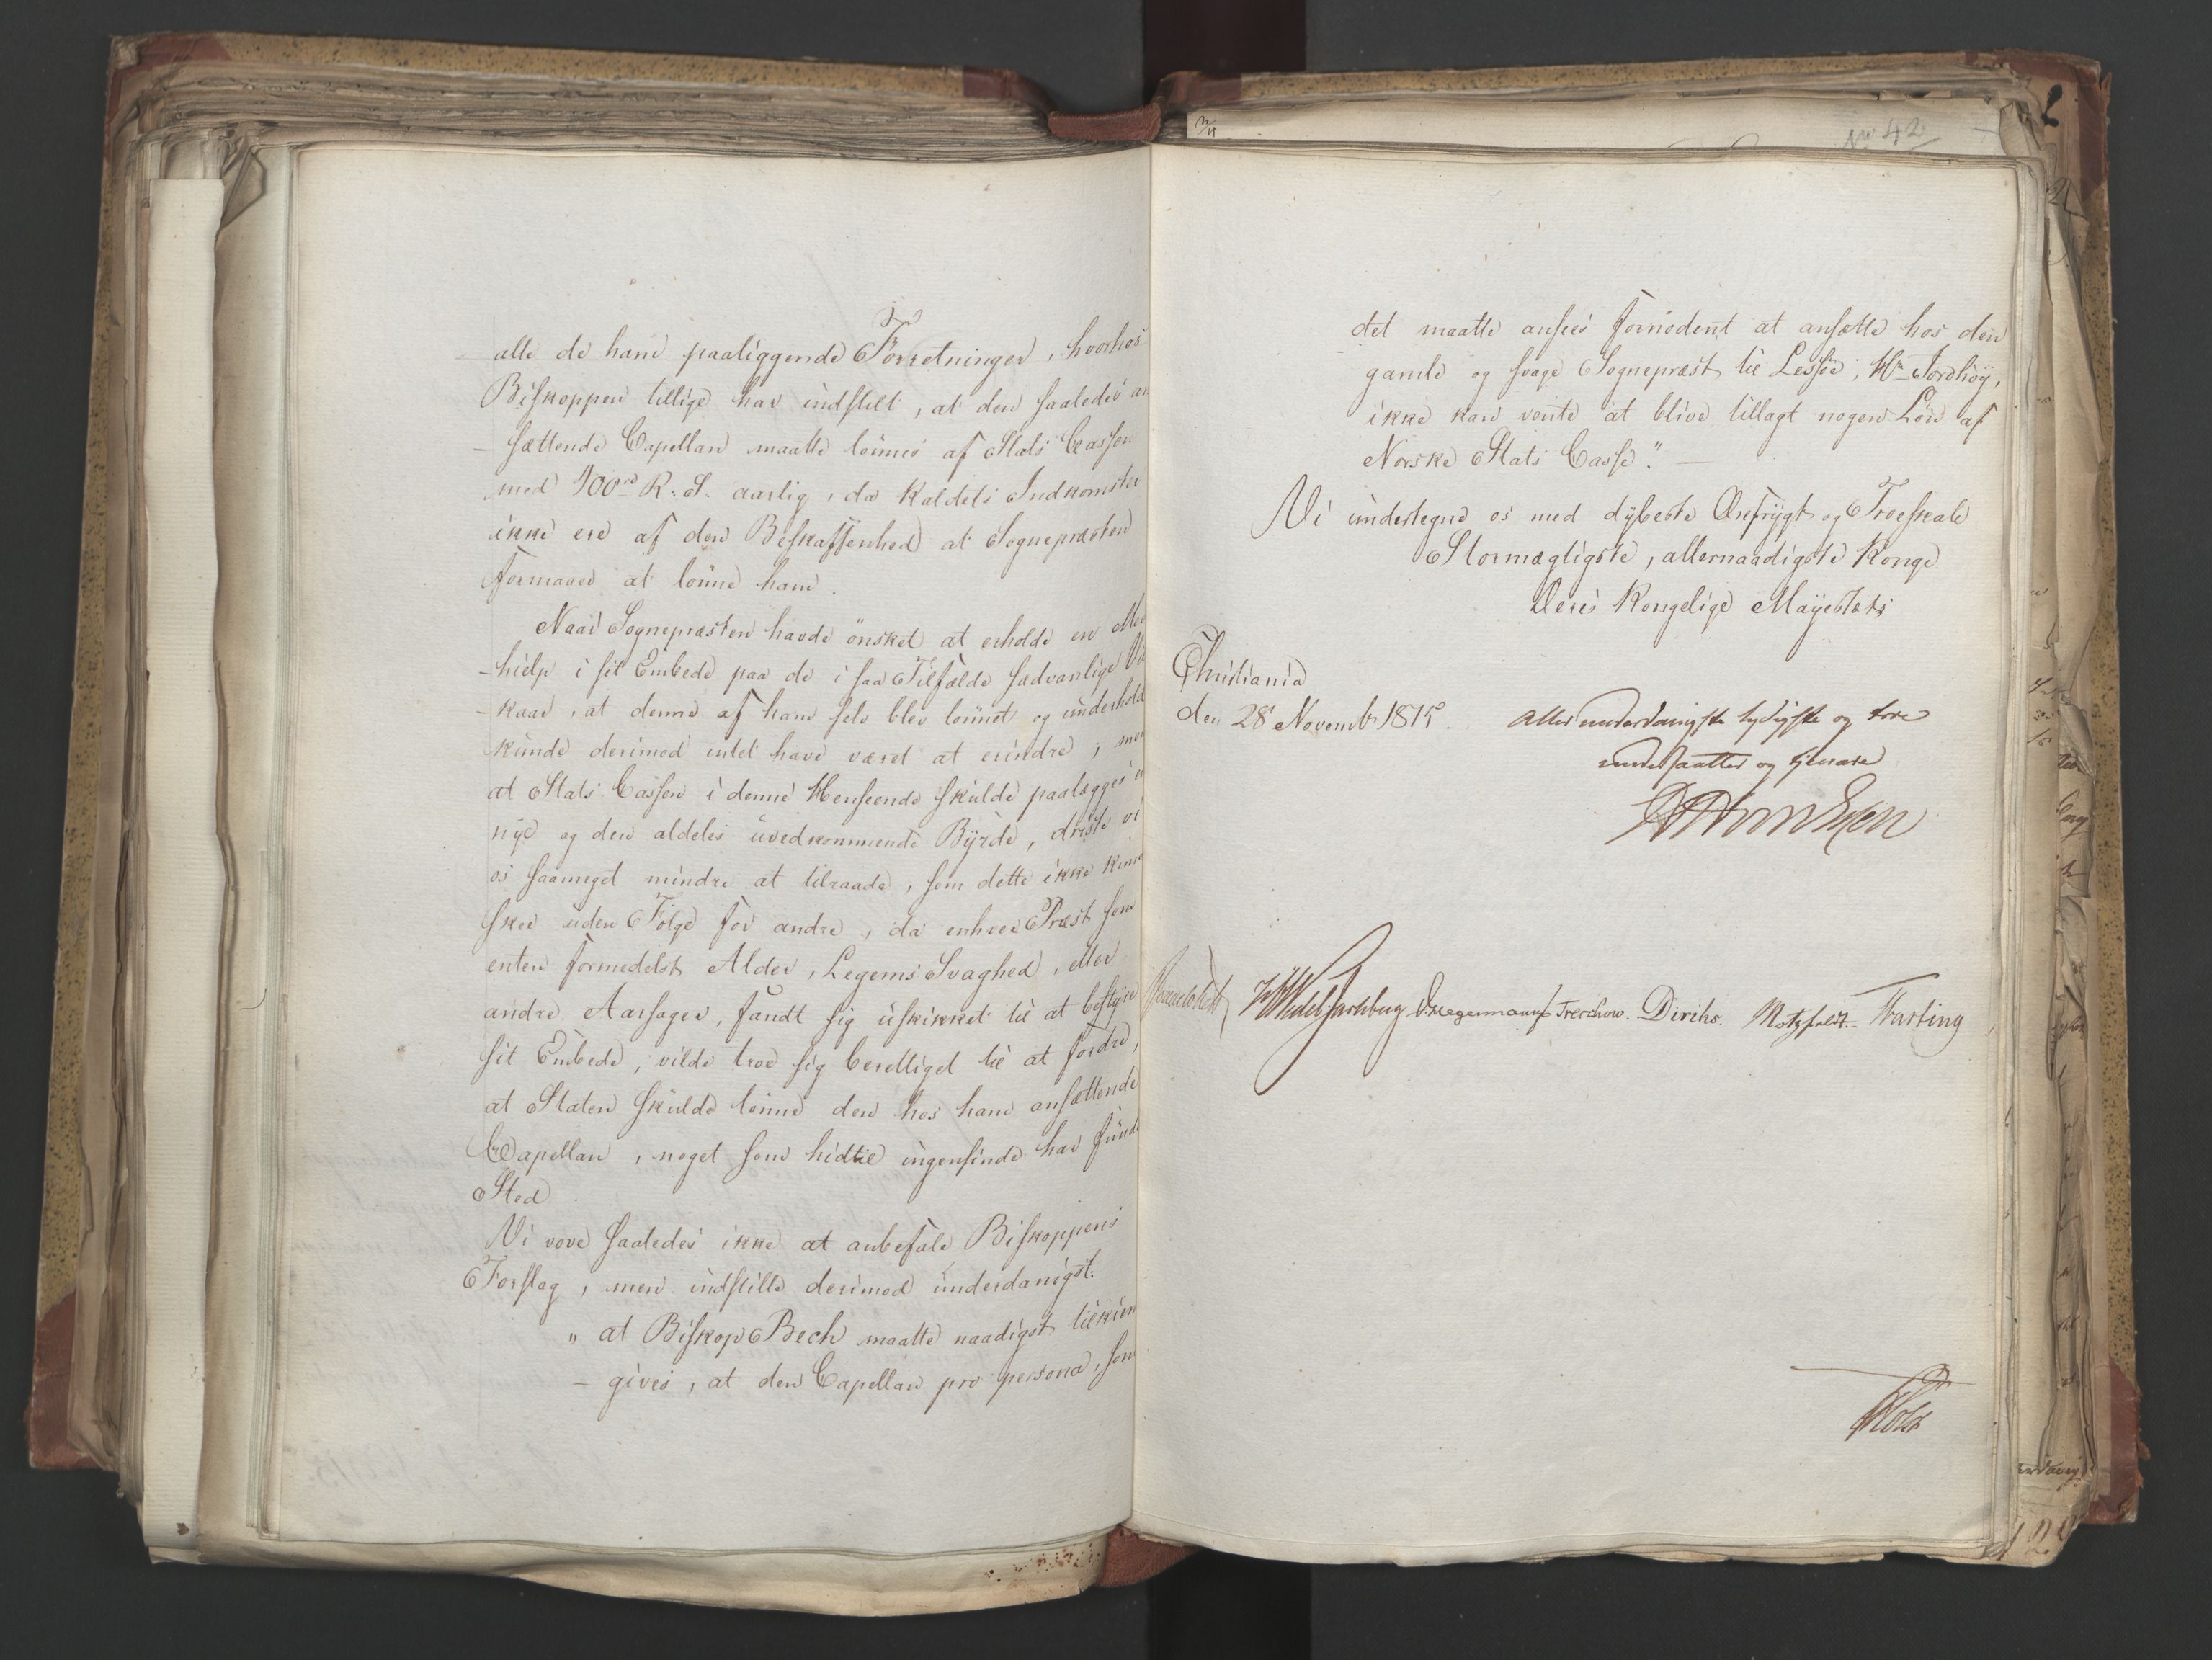 alle de ham paaliggende Forretninger, hvorhos
Biskoppen tillige har indstilt, at den saaledes an
-sættende Capellan maatte lønnes af Stats Cassen
med 100 R. S. aarlig, da Kaldets Indkomster
ikke ere af den Beskaffenhed at Sognepræsten
formaaer at lønne ham.
Naar Sognepræsten havde ønsket at erholde en Med
-hielp i sit Embede paa de i saa Tilfælde sædvanlige Vil
-kaar, at denne af ham selv blev lønnet og underholdt
kunde derimod intet have været at erindre; men
at Stats Cassen i denne Henseende skulde paalægges en
nye og den aldeles uvedkommende Byrde, driste vi
os saameget mindre at tilraade, som dette ikke kunde
skee uden Følge for andre, da enhver Præst som
enten formedelst Alder, Legems Svaghed, eller
andre Aarsager, fandt sig uskikket til at bestyre
sit Embede, vilde troe sig berettiget til at fordre,
at Staten skulde lønne den hos ham ansættende
Capellan, noget som hidtil ingensinde har fundet
Sted.
Vi vove saaledes ikke at anbefale Biskoppens
Forslag, men indstille derimod underdanigst:
" at Biskop Bech maatte naadigst tilkien
- gives, at den Capellan pro persona, som
No 42
det maatte ansees fornødent at ansætte hos den
gamle og svage Sognepræst til Lessøe, Hr Jordhøy,
ikke kan vente at blive tillagt nogen Løn af
Norske Stats Casse." —
Vi undertegne os med dybeste Ærefrygt og Troeskab
Stormægtigste, allernaadigste Konge
Deres Kongelige Mayestæts
Christiania
den 28 Novembr 1815.
allerunderdanigste lydigste og troe
undersaatter og tjenere
M Wedel Jarlsberg D. Hegermann Treschow. Diriks. Motzfeldt. Fasting
Holst